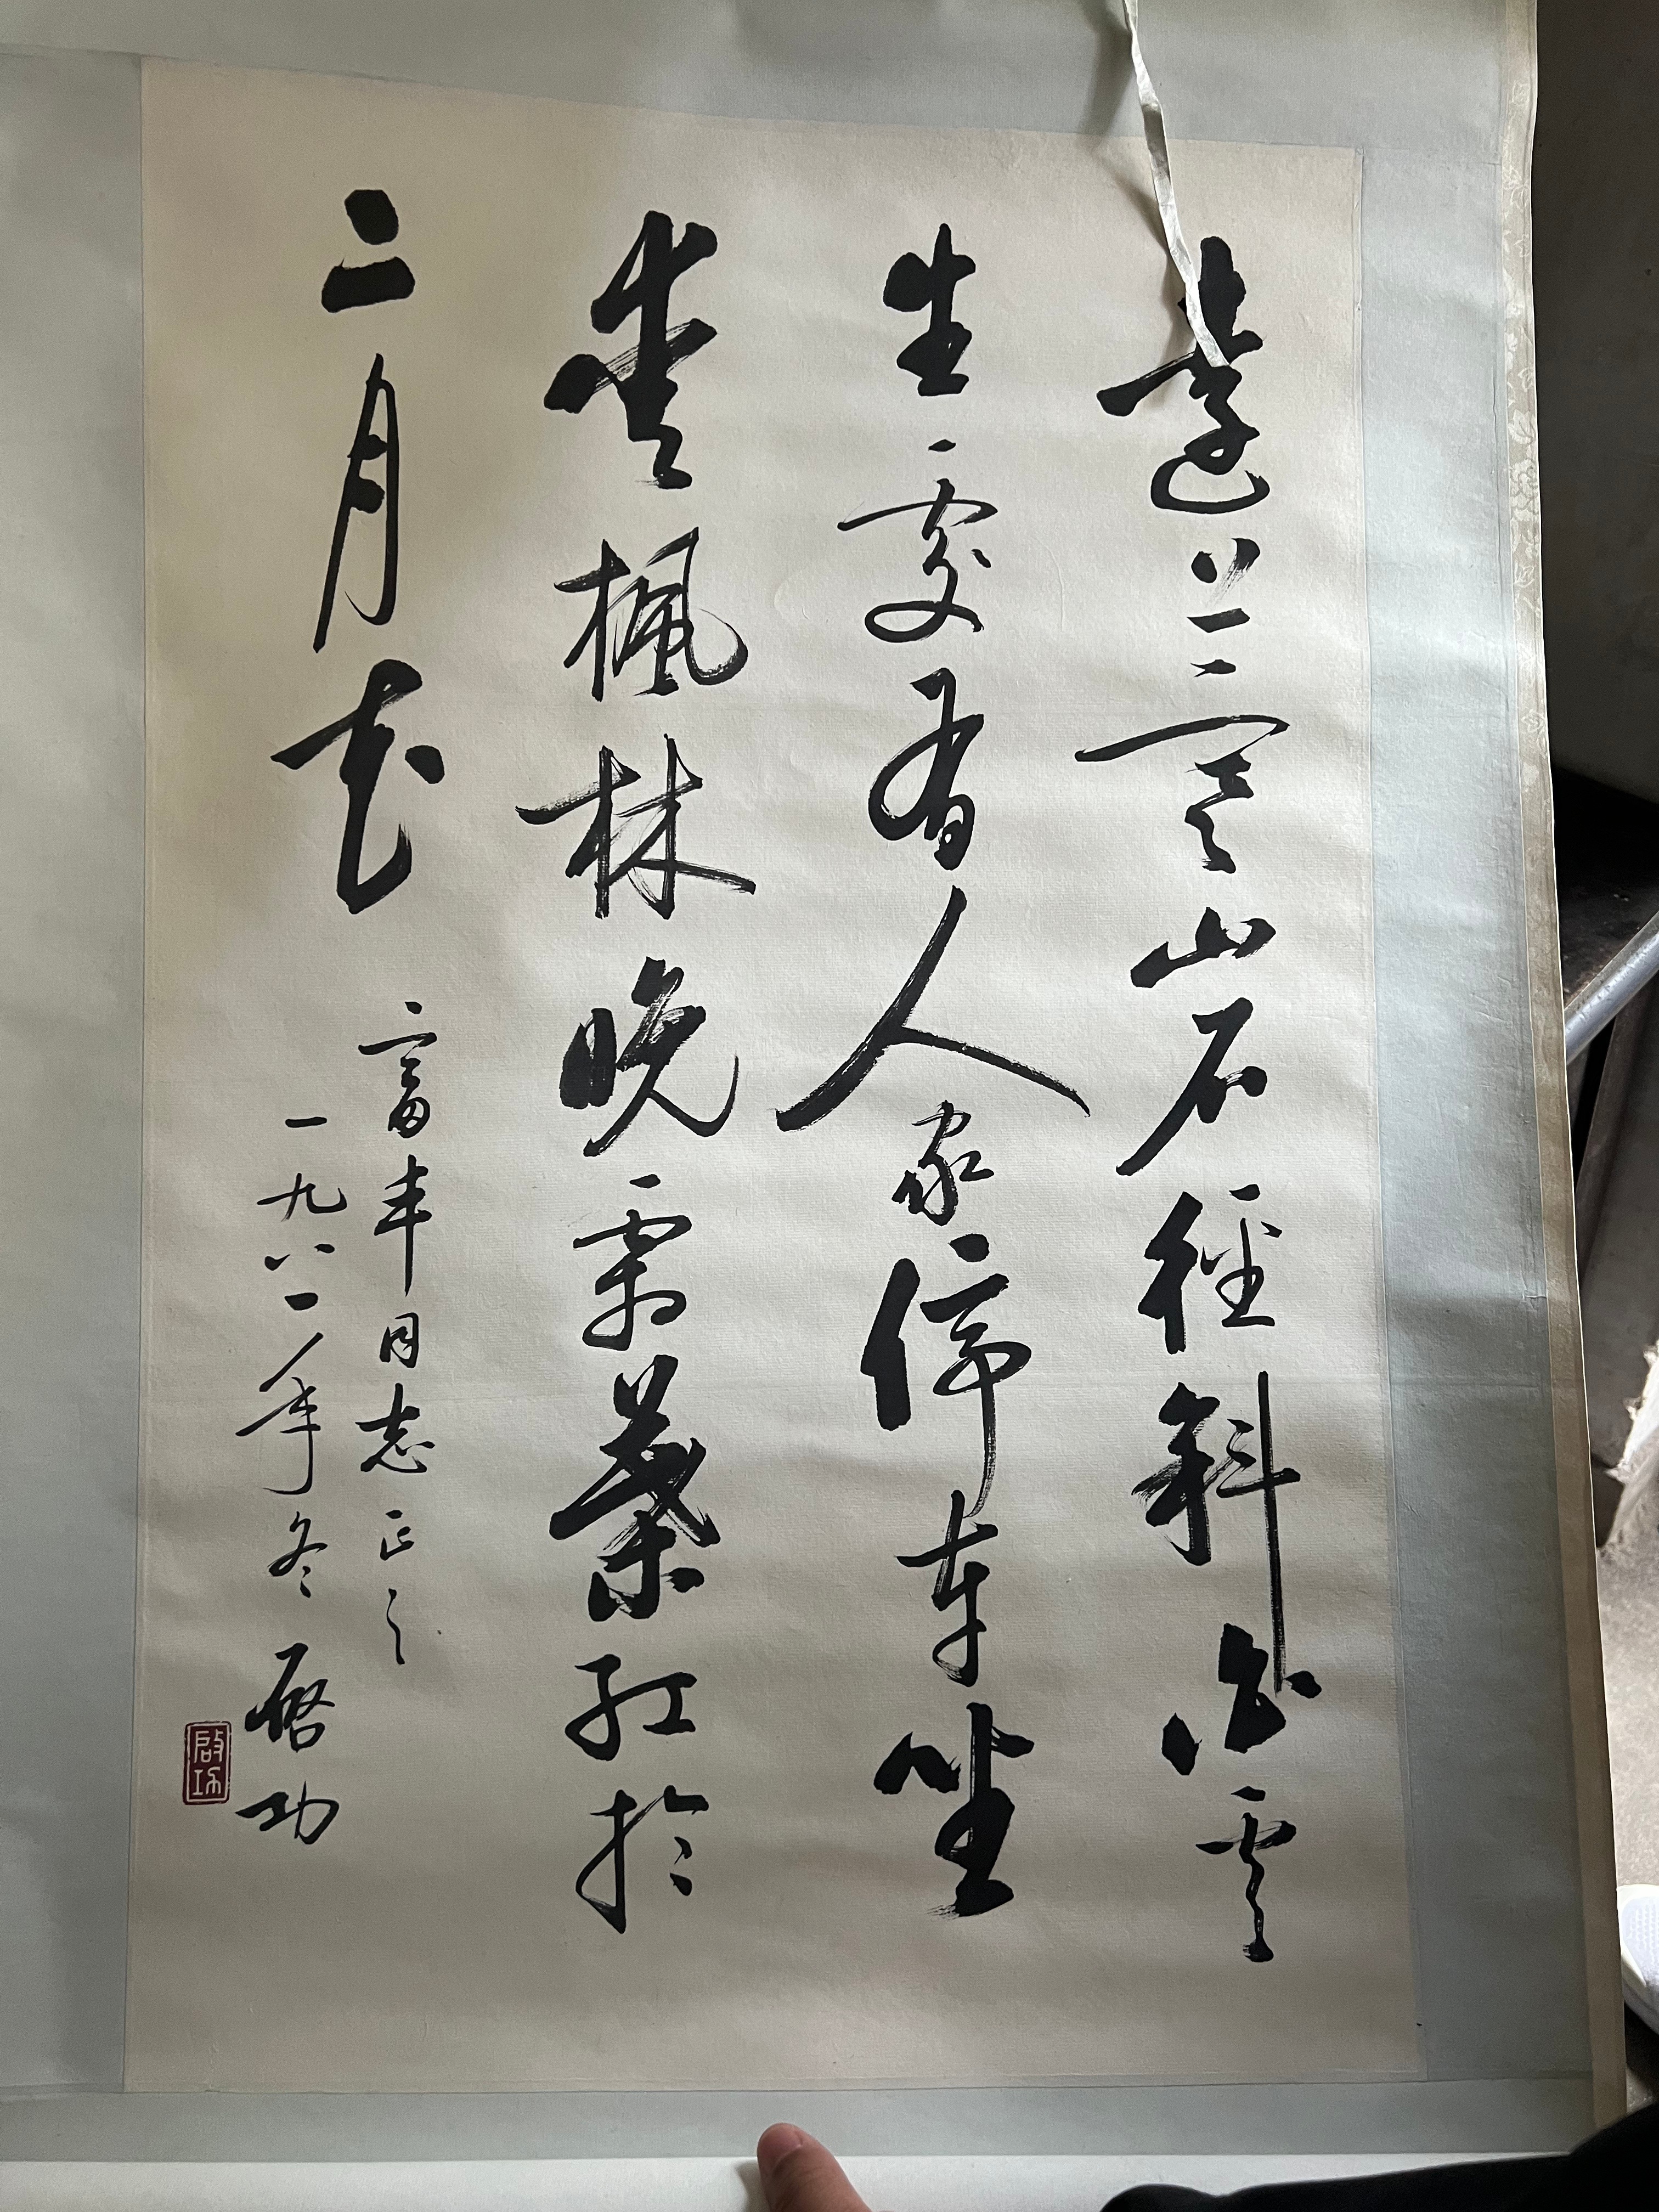 遠上寒山石徑斜白雲
生處有人家停車坐
愛楓林晚霜葉紅於
二月花
富丰同志正之
一九八一年冬 啟功
啟功